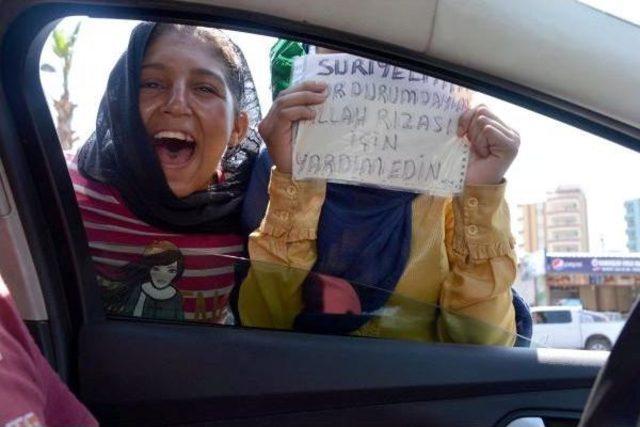 SURİYELİ
OR DURUMDAY
LLAH RIZASI
İÇİN
YARDIM EDİN
pepsi